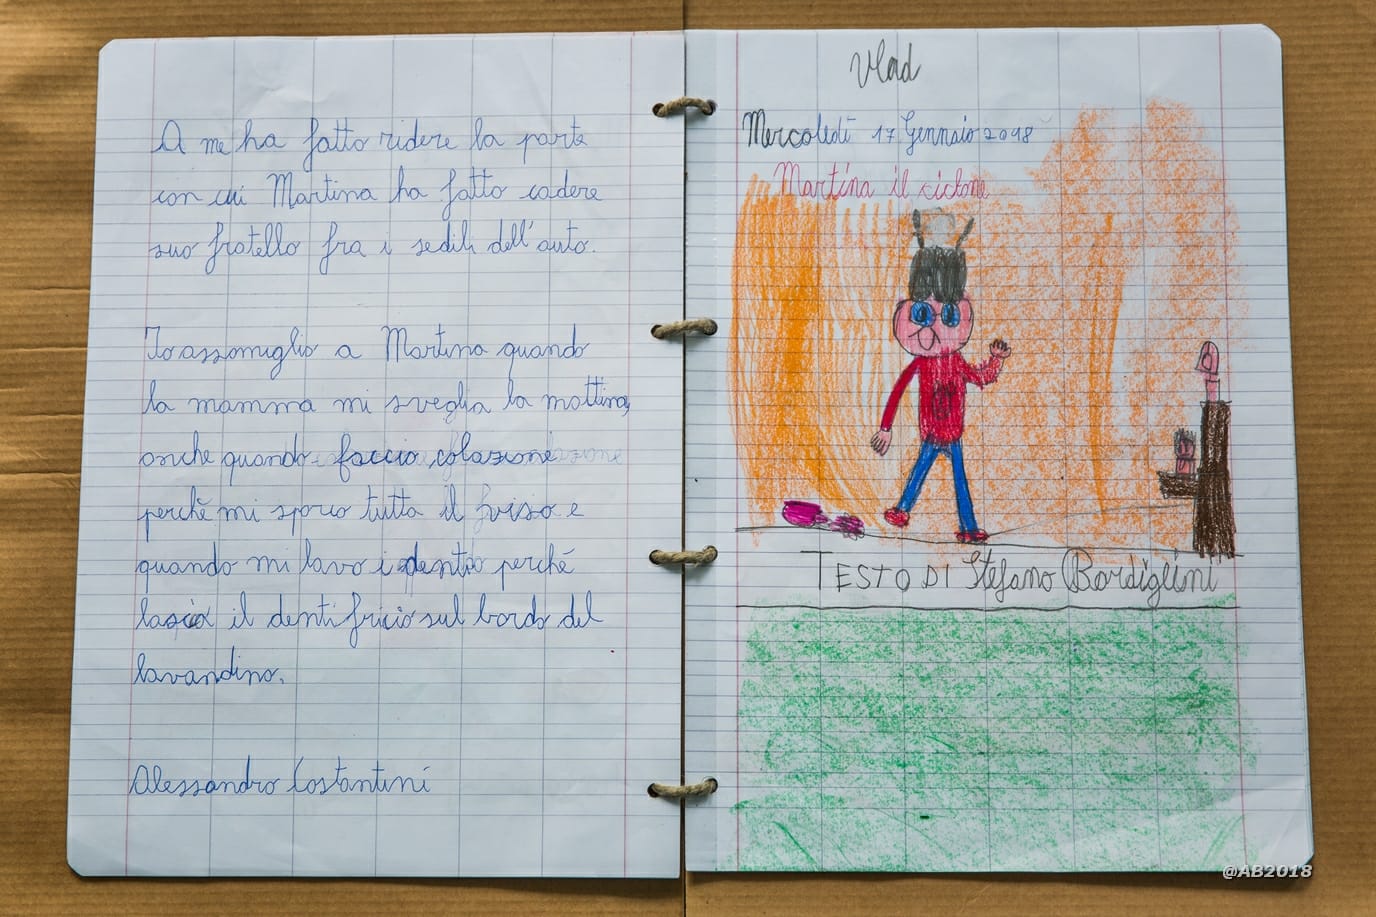 A me ha fatto ridere la parte
con cui Martina ha fatto cadere
suo fratello fra i sedili dell'auto.
Io assomiglio a Martina quando
la mamma mi sveglia la mattina,
anche quando faccio colazione
perchè mi sporco tutto il viso e
quando mi lavo i denti perchè
lascio il dentifricio sul bordo del
lavandino.
Alessandro Costantini
Vlad
Mercoledì 17 Gennaio 2018
Martina il ciclone
TESTO DI Stefano Bordiglioni
@AB2018